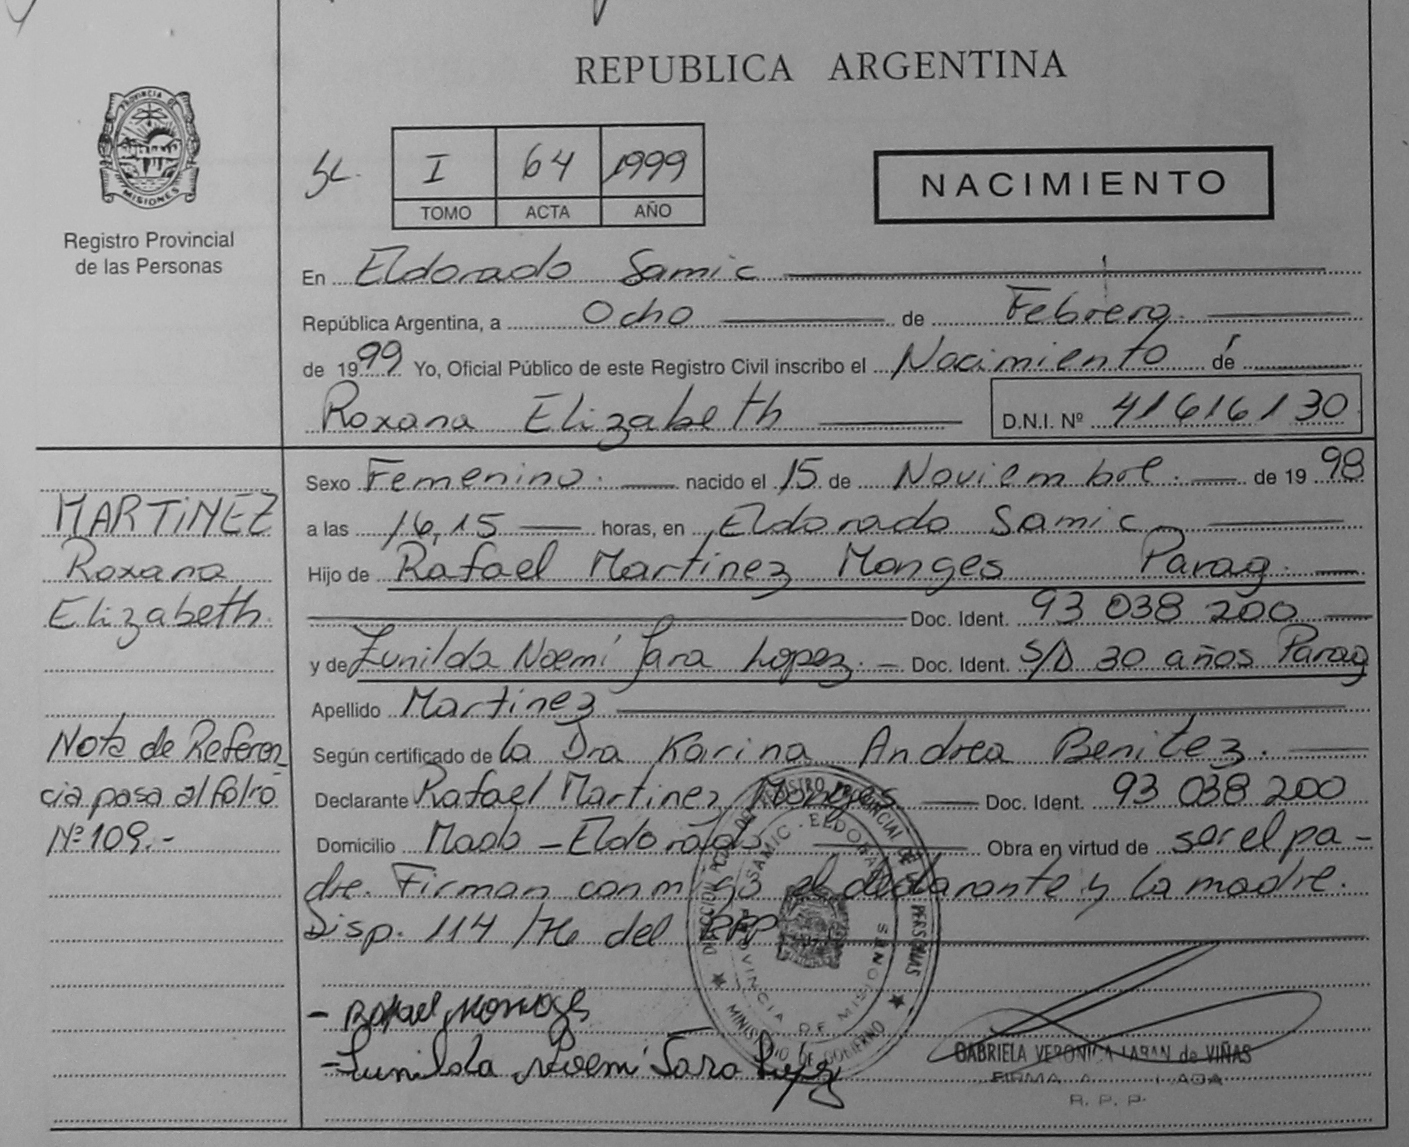 REPUBLICA ARGENTINA
PROVINCIA DE
MISIONES
Registro Provincial
de las Personas
I 64 1999
TOMO ACTA AÑO
NACIMIENTO
En Eldorado Samic
República Argentina, a Ocho de Febrero.
de 1999 Yo, Oficial Público de este Registro Civil inscribo el Nacimiento de
Roxana Elizabeth D.N.I. Nº 41616130
MARTiNEZ
Roxana
Elizabeth.
Nota de Referen
cia pasa al folio
Nº 109.-
Sexo Femenino. nacido el 15 de Noviembre. de 1998
a las 16,15 horas, en Eldorado Samic
Hijo de Rafael Martinez Monges Parag.
Doc. Ident. 93 038 200
y de Zunilda Noemí Jara Lopez. Doc. Ident. S/D 30 años Parag
Apellido Martinez
Según certificado de la Dra Karina Andrea Benitez.
Declarante Rafael Martinez Monges Doc. Ident. 93 038 200
Domicilio Mado - Eldorado Obra en virtud de ser el pa-
dre. Firman conmigo el declarante y la madre.
Disp. 114/76 del RPP
DIRECCION PCIAL. DE REGISTRO PROVINCIAL DE PERSONAS
SAMIC - ELDORADO
PROVINCIA DE MISIONES
MINISTERIO DE GOBIERNO
- Rafael Monges
- Zunilda Noemi Jara López
GABRIELA VERONICA de VIÑAS
FIRMA
R. P. P.